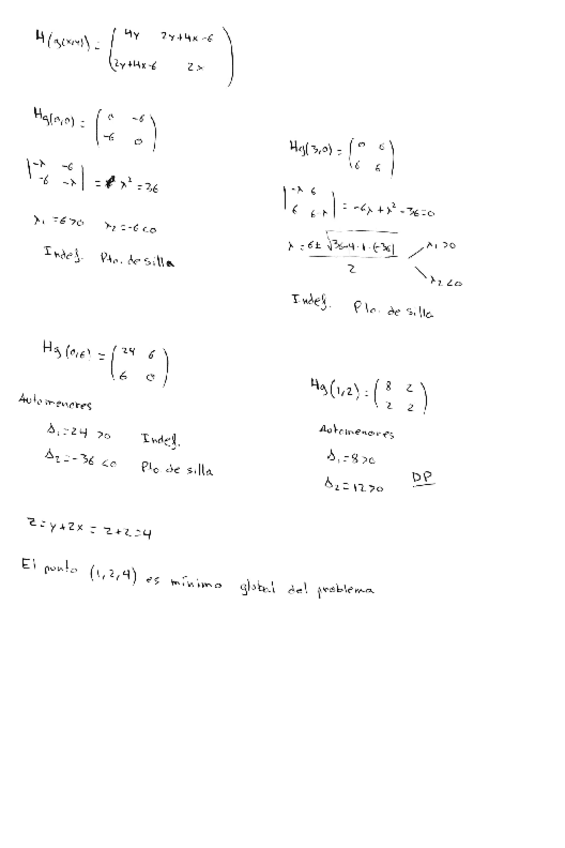 H(g(x,y)) = ( 4y 2y+4x-6
2y+4x-6 2x )
Hg(0,0) = ( 0 -6
-6 0 )
|-λ -6
-6 -λ| = λ² = 36
λ₁ = 6>0 λ₂ = -6<0
Indef. Pto. de silla
Hg(3,0) = ( 0 6
6 6 )
|-λ 6
6 6-λ| = -6λ + λ² - 36 = 0
λ = 6± √36-4·1·(-36) / 2 λ₁>0
λ₂<0
Indef. Pto. de silla
Hg(0,6) = ( 24 6
6 0 )
Automenores
Δ₁=24 >0 Indef.
Δ₂=-36 <0 Pto. de silla
Hg(1,2) = ( 8 2
2 2 )
Automenores
Δ₁=8>0
Δ₂=12>0 DP
z = y+2x = 2+2=4
El punto (1,2,4) es mínimo global del problema